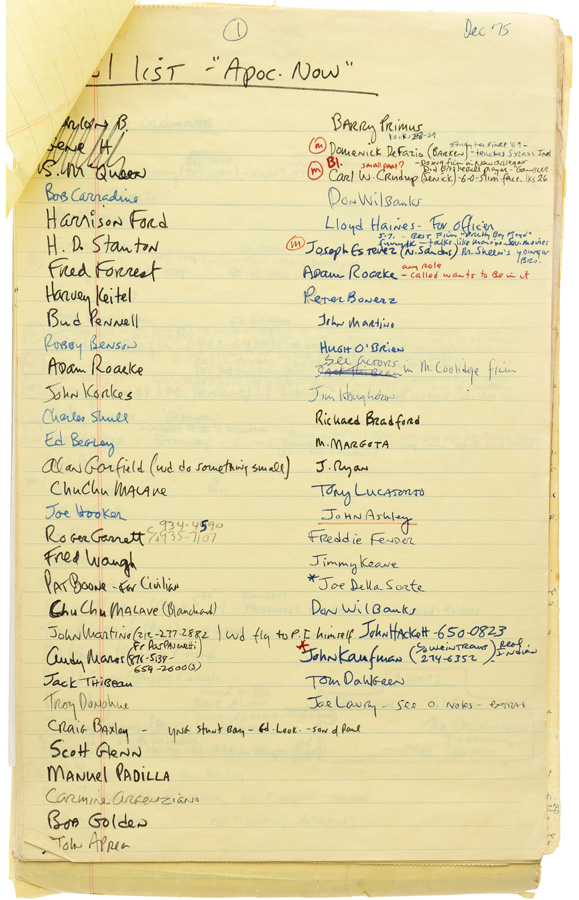 1
Dec '75
l list - "Apoc. Now"
B.
H.
Queen
Bob Carradine
Harrison Ford
H. D. Stanton
Fred Forrest
Harvey Keitel
Bud Pennell
Robby Benson
Adam Roarke
John Korkes
Charles Shull
Ed Begley
Alan Garfield (wd do something small)
ChuChu Malave
Joe Hooker
Roger Garrett 934-4590
935-7107
Fred Waugh
Pat Boone - for Civilian
Chu Chu Malave (Blanchard)
John Martino (212-237-2882) wd fly to P.I. himself
Andy Maros (876-5139-
659-2600)
Jack Thibeau
Troy Donohue
Craig Baxley - yng stunt boy - gd. look. - son of Paul
Scott Glenn
Manuel Padilla
Carmine Argenziano
Bob Golden
John Aprea
Barry Primus
m Domenick DeFazio (Barken) - teaches
m Bl. small part?
Carl W. Crudup (Renick) 6-0-slim face. lks 26
Don Wilbanks
Lloyd Haines - For officer
m Joseph Estevez (N. Sandos) M. Sheen's younger
Bro.
Adam Roarke - any role
- called wants to be in it
Peter Bonerz
John Martino
Hugh O'Brien
See actors in M. Coolidge film
Jim Houghton
Richard Bradford
M. Margota
J. Ryan
Tony Lucatorto
John Ashley
Freddie Fender
Jimmy Keane
* Joe Della Sorte
Don Wilbanks
John Hackett - 650-0823
* John Kaufman (274-6352) real
Indian
Tom Dahlgren
Joe Lowry - see O. notes - extras